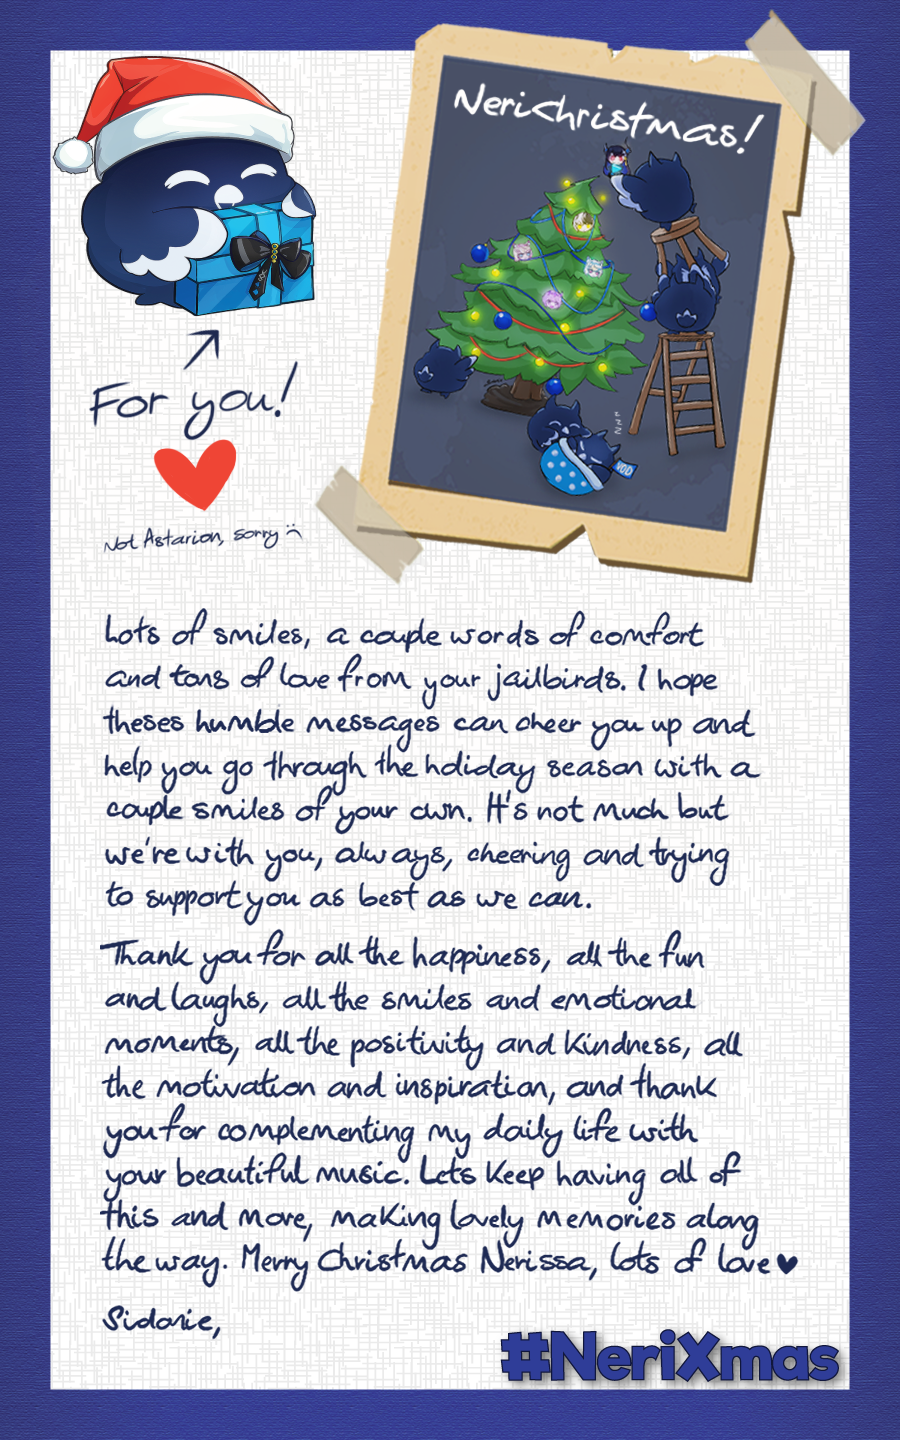 NeriChristmas!
For you!
Not Astarion, sorry :(
z z z
VOD
Lots of smiles, a couple words of comfort
and tons of love from your jailbirds. I hope
theses humble messages can cheer you up and
help you go through the holiday season with a
couple smiles of your own. It's not much but
we're with you, always, cheering and trying
to support you as best as we can.
Thank you for all the happiness, all the fun
and laughs, all the smiles and emotional
moments, all the positivity and kindness, all
the motivation and inspiration, and thank
you for complementing my daily life with
your beautiful music. Lets keep having all of
this and more, making lovely memories along
the way. Merry Christmas Nerissa, lots of love ♥
Sidonie,
#NeriXmas